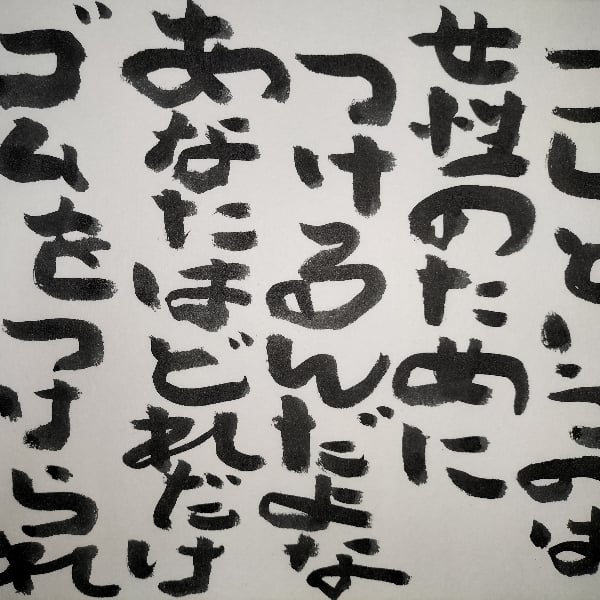 というのは
女性のために
つけるんだよな
あなたはどれだけ
ゴムをつけられ